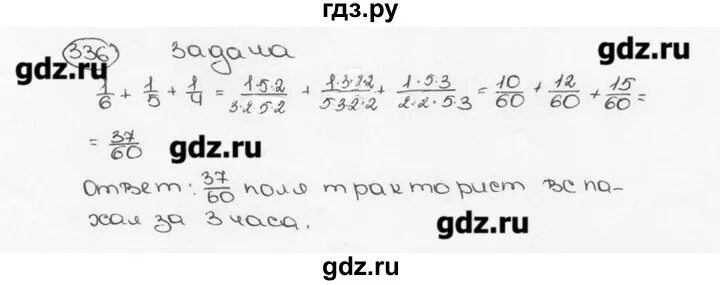 гдз.ру
336 Задача
gdz.ru gdz.ru
1/6 + 1/5 + 1/4 = 1·5·2/3·2·5·2 + 1·3·2·2/5·3·2·2 + 1·5·3/2·2·5·3 = 10/60 + 12/60 + 15/60 =
= 37/60 gdz.ru
Ответ: 37/60 поля тракторист вспа-
хал за 3 часа.
gdz.ru
gdz.ru